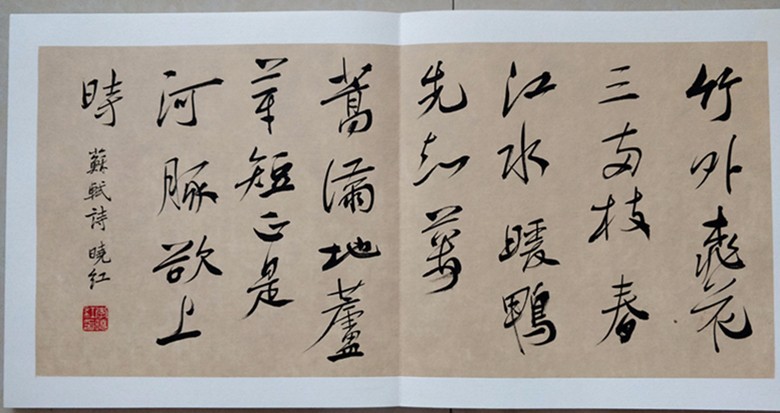 竹外桃花
三兩枝春
江水暖鴨
先知蔞
蒿滿地蘆
芽短正是
河豚欲上
時
蘇軾詩 曉紅